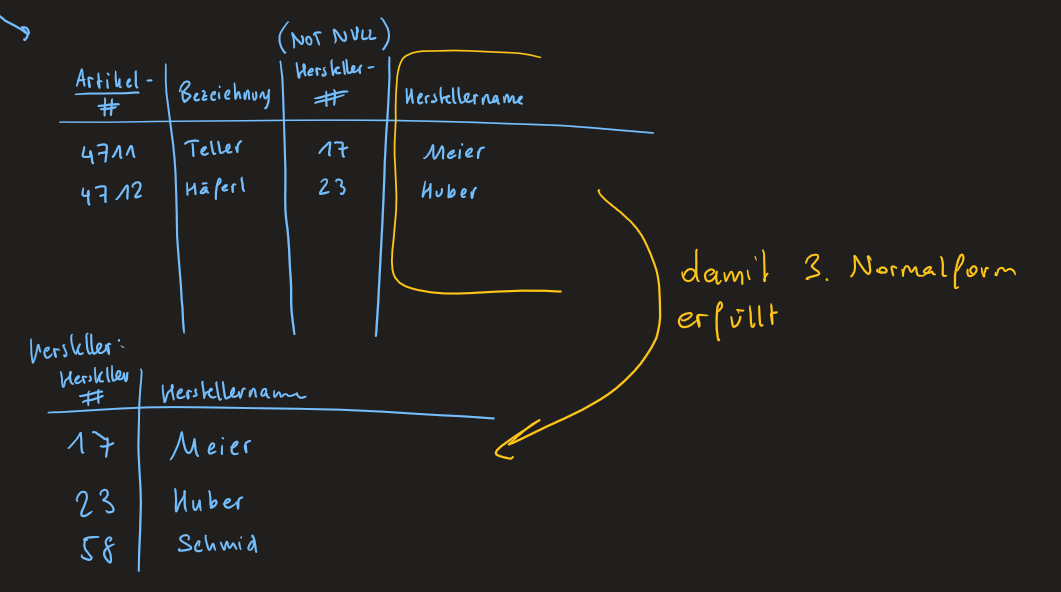 (NOT NULL)
Artikel- Bezeichnung Hersteller- Herstellername
# #
4711 Teller 17 Meier
4712 Häferl 23 Huber
damit 3. Normalform
erfüllt
Hersteller:
Hersteller Herstellername
#
17 Meier
23 Huber
58 Schmid